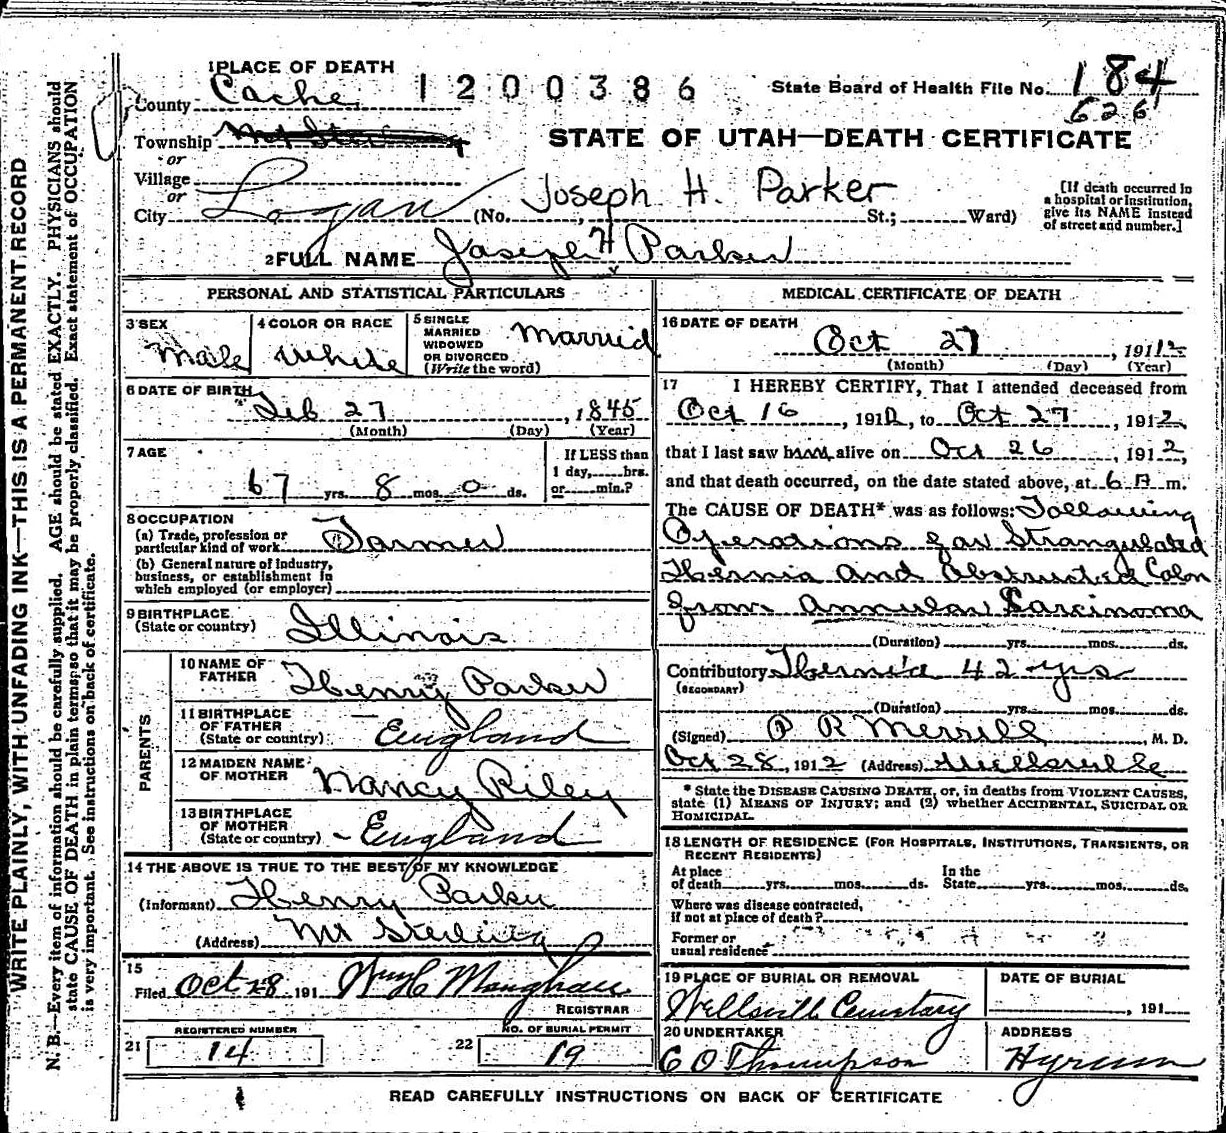 WRITE PLAINLY, WITH UNFADING INK—THIS IS A PERMANENT RECORD
N. B.—Every item of information should be carefully supplied. AGE should be stated EXACTLY. PHYSICIANS should
state CAUSE OF DEATH in plain terms, so that it may be properly classified. Exact statement of OCCUPATION
is very important. See instructions on back of certificate.
1 PLACE OF DEATH
County Cache
1200386
State Board of Health File No. 184
626
Township Mt Sterling
or
Village
or
City Logan (No. Joseph H. Parker St.; Ward)
STATE OF UTAH—DEATH CERTIFICATE
[If death occurred in
a hospital or institution,
give its NAME instead
of street and number.]
2 FULL NAME Joseph H Parker
PERSONAL AND STATISTICAL PARTICULARS
3 SEX Male
4 COLOR OR RACE White
5 SINGLE
MARRIED
WIDOWED
OR DIVORCED
(Write the word) Married
6 DATE OF BIRTH
Feb 27, 1845
(Month) (Day) (Year)
7 AGE
67 yrs. 8 mos. 0 ds.
If LESS than
1 day, hrs.
or min.?
8 OCCUPATION
(a) Trade, profession or
particular kind of work Farmer
(b) General nature of Industry,
business, or establishment in
which employed (or employer)
9 BIRTHPLACE
(State or country) Illinois
PARENTS
10 NAME OF
FATHER Henry Parker
11 BIRTHPLACE
OF FATHER
(State or country) England
12 MAIDEN NAME
OF MOTHER Nancy Riley
13 BIRTHPLACE
OF MOTHER
(State or country) England
14 THE ABOVE IS TRUE TO THE BEST OF MY KNOWLEDGE
(Informant) Henry Parker
(Address) Mt Sterling
15
Filed Oct 28 191 Wm H Maughan
REGISTRAR
21 REGISTERED NUMBER
14
22 NO. OF BURIAL PERMIT
19
MEDICAL CERTIFICATE OF DEATH
16 DATE OF DEATH
Oct 27, 1912
(Month) (Day) (Year)
17 I HEREBY CERTIFY, That I attended deceased from
Oct 16, 1912, to Oct 27, 1912,
that I last saw him alive on Oct 26, 1912,
and that death occurred, on the date stated above, at 6 A m.
The CAUSE OF DEATH* was as follows: Following
Operations for Strangulated
Hernia and Obstructed Colon
from Annular Carcinoma
(Duration) yrs. mos. ds.
Contributory Hernia 42 yrs
(SECONDARY)
(Duration) yrs. mos. ds.
(Signed) P R Merrill, M. D.
Oct 28, 1912 (Address) Wellsville
* State the DISEASE CAUSING DEATH, or, in deaths from VIOLENT CAUSES,
state (1) MEANS OF INJURY; and (2) whether ACCIDENTAL, SUICIDAL OR
HOMICIDAL.
18 LENGTH OF RESIDENCE (FOR HOSPITALS, INSTITUTIONS, TRANSIENTS, OR
RECENT RESIDENTS)
At place
of death yrs. mos. ds.
In the
State yrs. mos. ds.
Where was disease contracted,
if not at place of death?
Former or
usual residence
19 PLACE OF BURIAL OR REMOVAL
Wellsvill Cemetary
DATE OF BURIAL
, 191
20 UNDERTAKER
C O Thompson
ADDRESS
Hyrum
READ CAREFULLY INSTRUCTIONS ON BACK OF CERTIFICATE